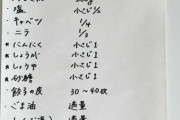 ・塩 小さじ1/2
・キャベツ 1/4
・ニラ 1/3
★にんにく 小さじ1
★しょうが 小さじ1
★しょうゆ 小さじ1
★砂糖 小さじ1
・餃子の皮 30〜40枚
・ごま油 適量
適量